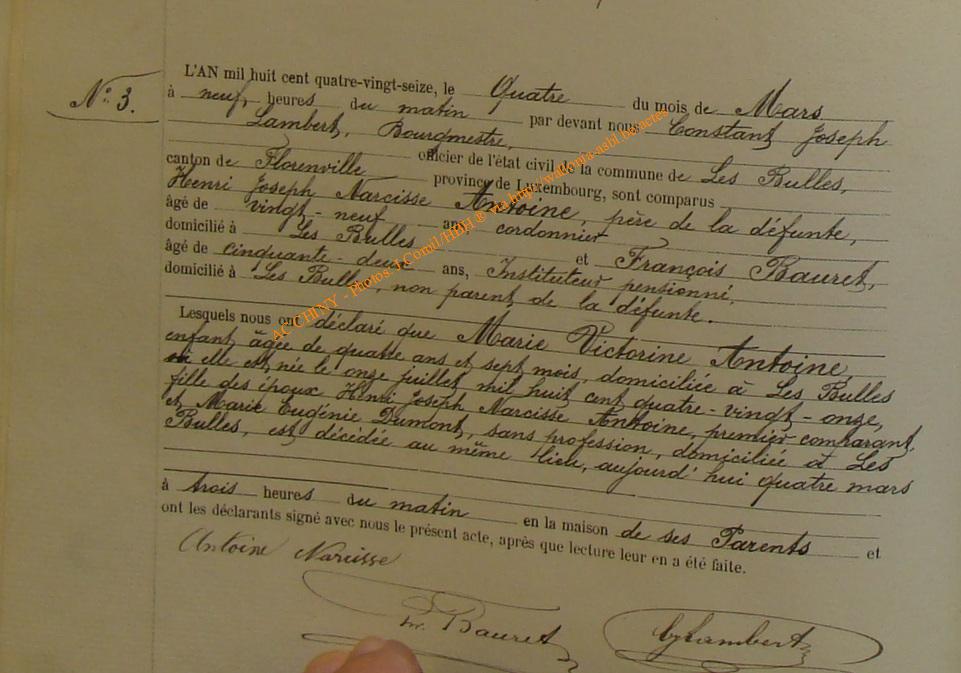 N° 3.
L'AN mil huit cent quatre-vingt-seize, le Quatre du mois de Mars
à neuf heures du matin par devant nous Constant Joseph
Lambert, Bourgmestre,
officier de l'état civil de la commune de Les Bulles,
canton de Florenville province de Luxembourg, sont comparus
Henri Joseph Narcisse Antoine, père de la défunte,
âgé de vingt-neuf ans, cordonnier
domicilié à Les Bulles et François Bauret,
âgé de cinquante-deux ans, Instituteur pensionné,
domicilié à Les Bulles, non parent de la défunte.
Lesquels nous ont déclaré que Marie Victorine Antoine,
enfant, âgée de quatre ans et sept mois, domiciliée à Les Bulles
où elle est née le onze juillet mil huit cent quatre-vingt-onze,
fille des époux Henri Joseph Narcisse Antoine, premier comparant,
et Marie Eugénie Dumont, sans profession, domiciliée à Les
Bulles, est décédée au même lieu, aujourd'hui quatre mars
à trois heures du matin en la maison de ses Parents et
ont les déclarants signé avec nous le présent acte, après que lecture leur en a été faite.
Antoine Narcisse
Fr. Bauret
CJLambert
AC CHINY - Photos J.Comil/HBH ® via http/wallonia-asbl.be/actes